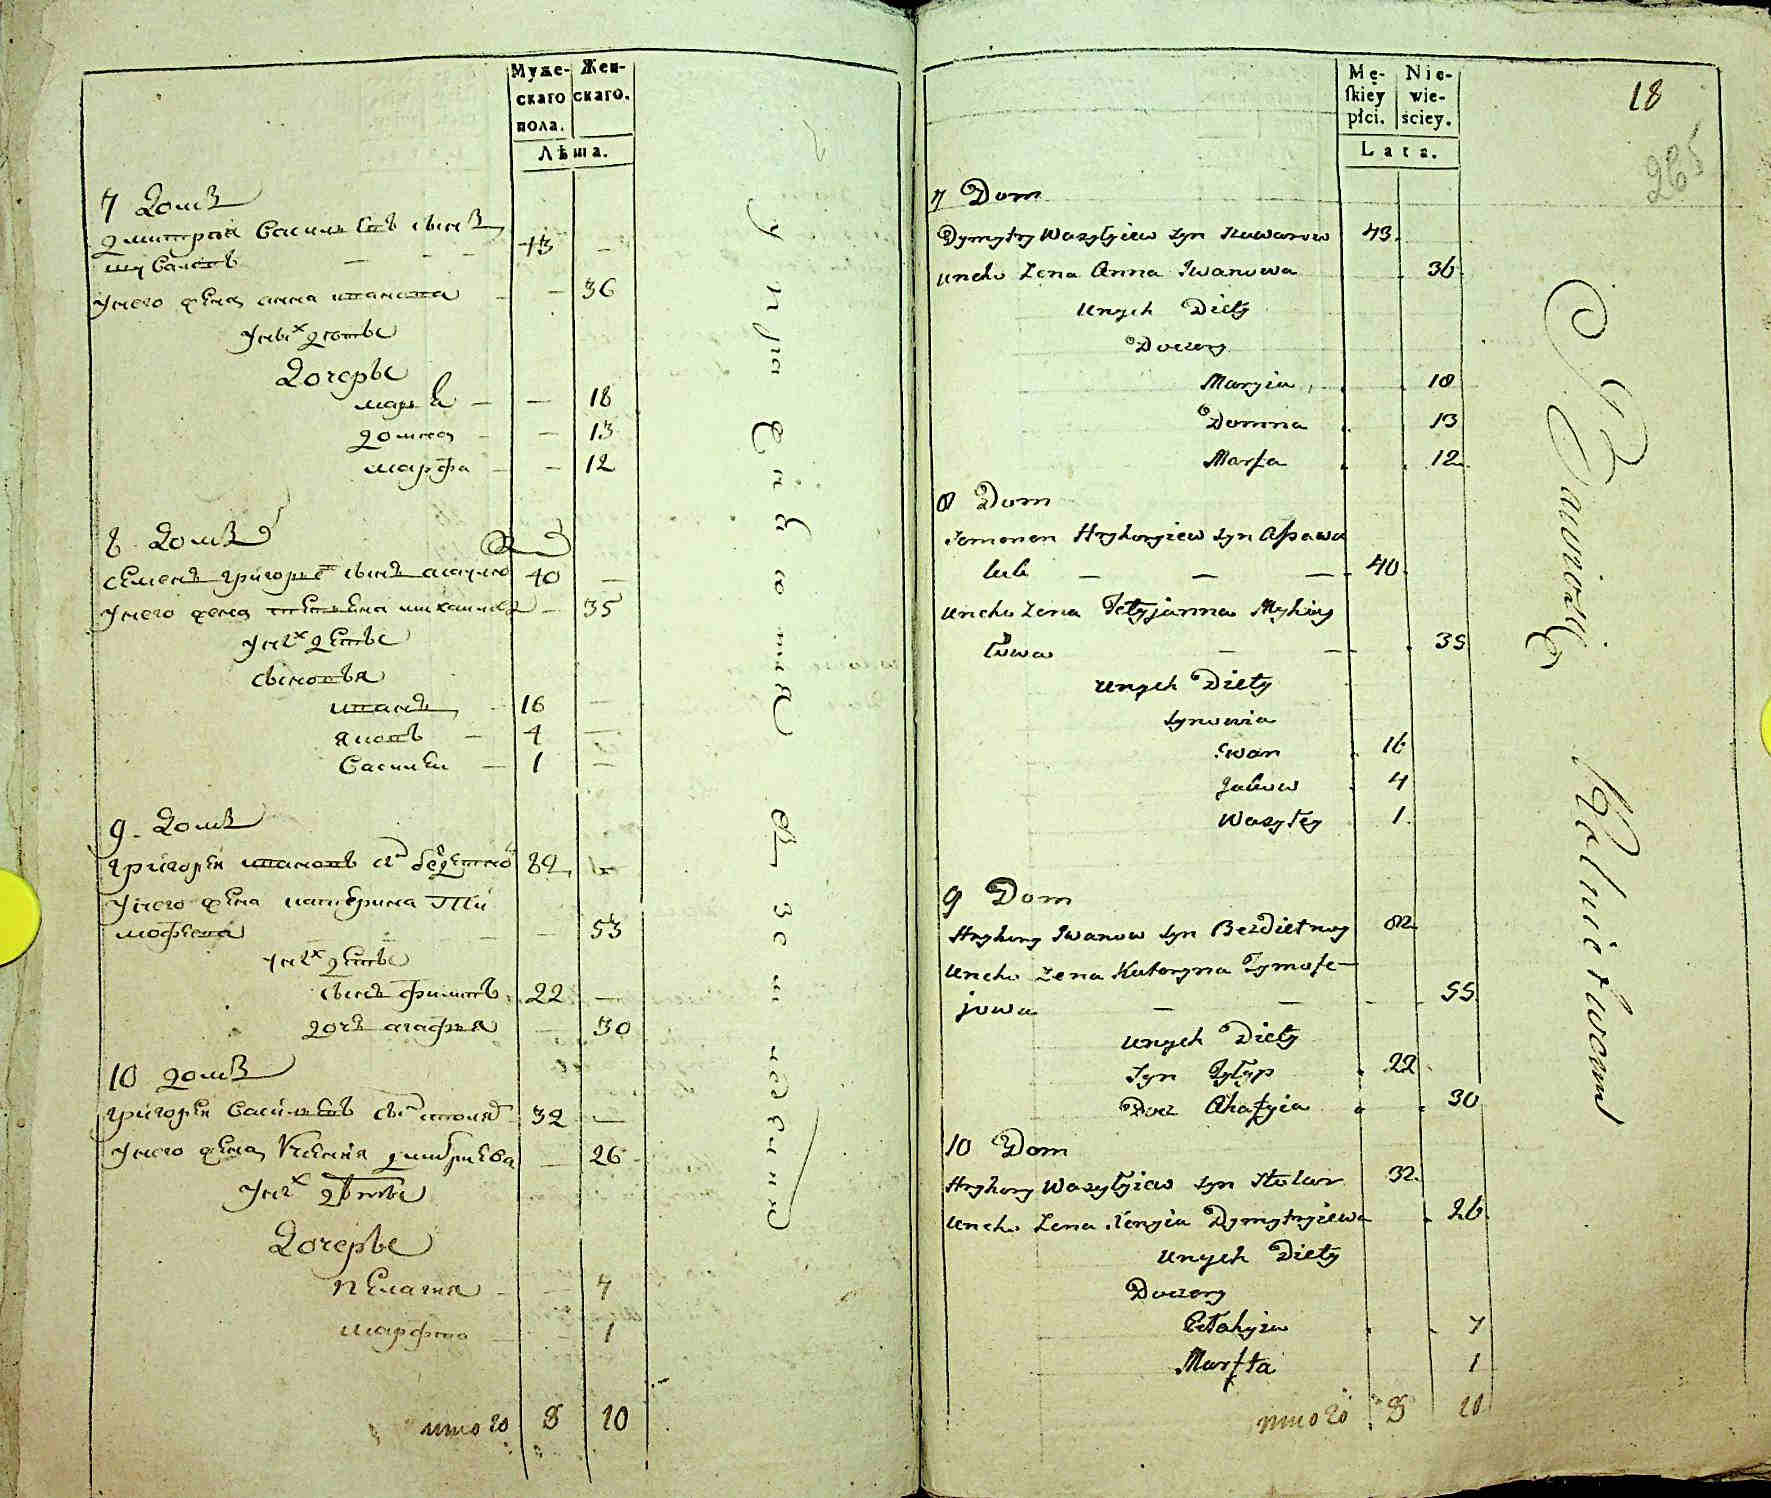 Муже-
скаго
пола.
Жен-
скаго.
Лѣта.
7 Домъ
Дмитрей Васильевъ сынъ
43
у него жена анна иванова — 36
у ных дѣтѣ
Дочерѣ
марья — — 18
домна — — 13
марфа — — 12
8 Домъ
Семенъ григорьев сынъ 40 —
у него жена татьяна михаилова — 35
у них дѣтѣ
сыновья
иванъ 16 —
яковъ — 4 —
Василеи — 1 —
9. Домъ
григореи ивановъ сн бездѣтной 82
у него жена катерина Ти
мофеева — — 53
у них дѣтѣ
сынъ филипъ 22 —
дочь агафья — 30
10 домъ
григореи Васильевъ сы столяр 32 —
у него жена Ксения дмитриева — 26
у них дѣтѣ
Дочерѣ
пелагея — — 7
марфа — — 1
итого 8 10
Mę-
skiey
płci.
Nie-
wie-
ściey.
Lata.
18
265
7 Dom
Dymytry Wasylyiew syn 43.
uneho Zena Anna Iwanowa 36
unych Diety
Doczery
Maryia 18
Domna 13
Marfa 12
8 Dom
Semenen Hryhoryiew syn
40.
uneho Zena Tetyjanna Myhay
łowa — — 35
unych Diety
synowia
Iwan 16
Jakow 4
Wasyley 1.
9 Dom
Hryhory Iwanow syn Bezdietnoy 82
uneho Zena Kateryna Tymofe-
jowa — — 55
unych Diety
Syn Fylyp 22
Docz Ahafyia 30
10 Dom
Hryhory Wasylyiew syn Stolar 32.
uneho Zena Xenyia Dymytryiewa 26.
unych Diety
Doczery
Pełahyia 7
Marfta 1
итого 8 10